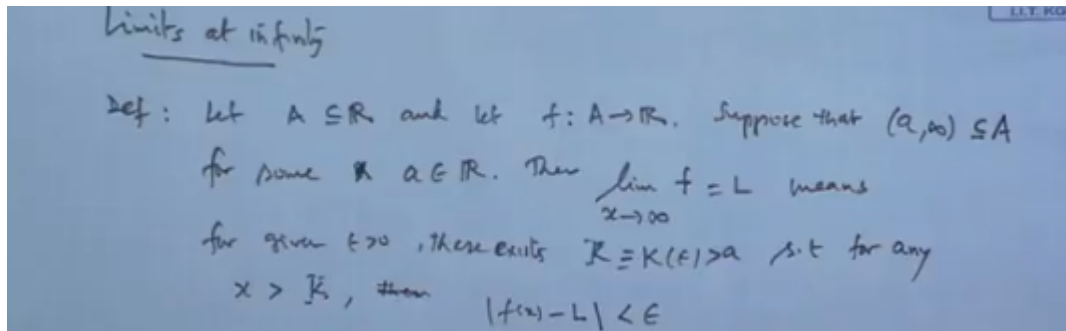 I.I.T. KG
Limits at infinity
Def : Let A ⊆ R and let f : A → R. Suppose that (a,∞) ⊆ A
for some a ∈ R. Then lim f = L means
x→∞
for given ϵ>0, there exists K ≡ K(ϵ)>a s.t for any
x > K, then
|f(x) - L| < ϵ